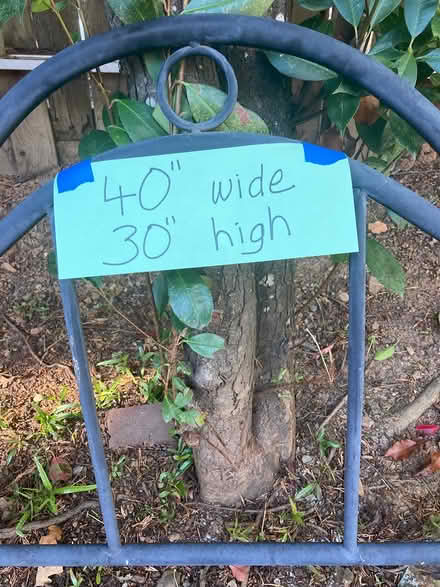 40" wide
30" high